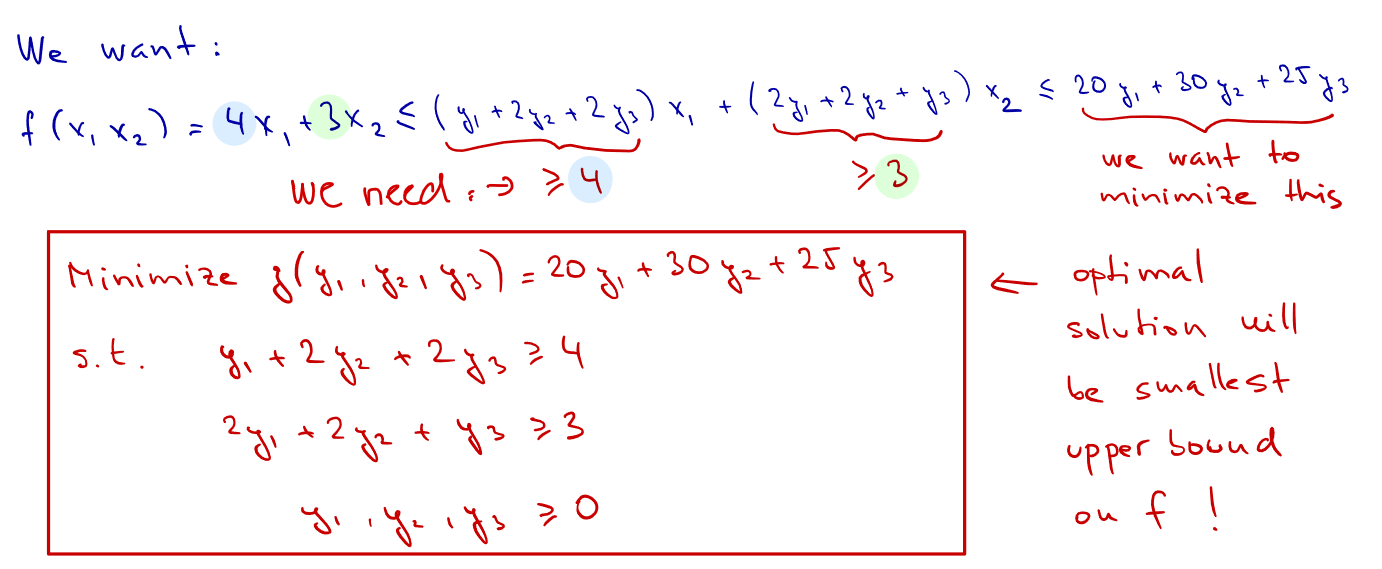 We want :
f(x₁ x₂) = 4x₁ + 3x₂ ≤ (y₁ + 2y₂ + 2y₃) x₁ + (2y₁ + 2y₂ + y₃) x₂ ≤ 20y₁ + 30y₂ + 25y₃
we need : → ≥ 4
≥ 3
we want to
minimize this
Minimize g(y₁, y₂, y₃) = 20y₁ + 30y₂ + 25y₃
s.t. y₁ + 2y₂ + 2y₃ ≥ 4
2y₁ + 2y₂ + y₃ ≥ 3
y₁, y₂, y₃ ≥ 0
← optimal
solution will
be smallest
upper bound
on f !